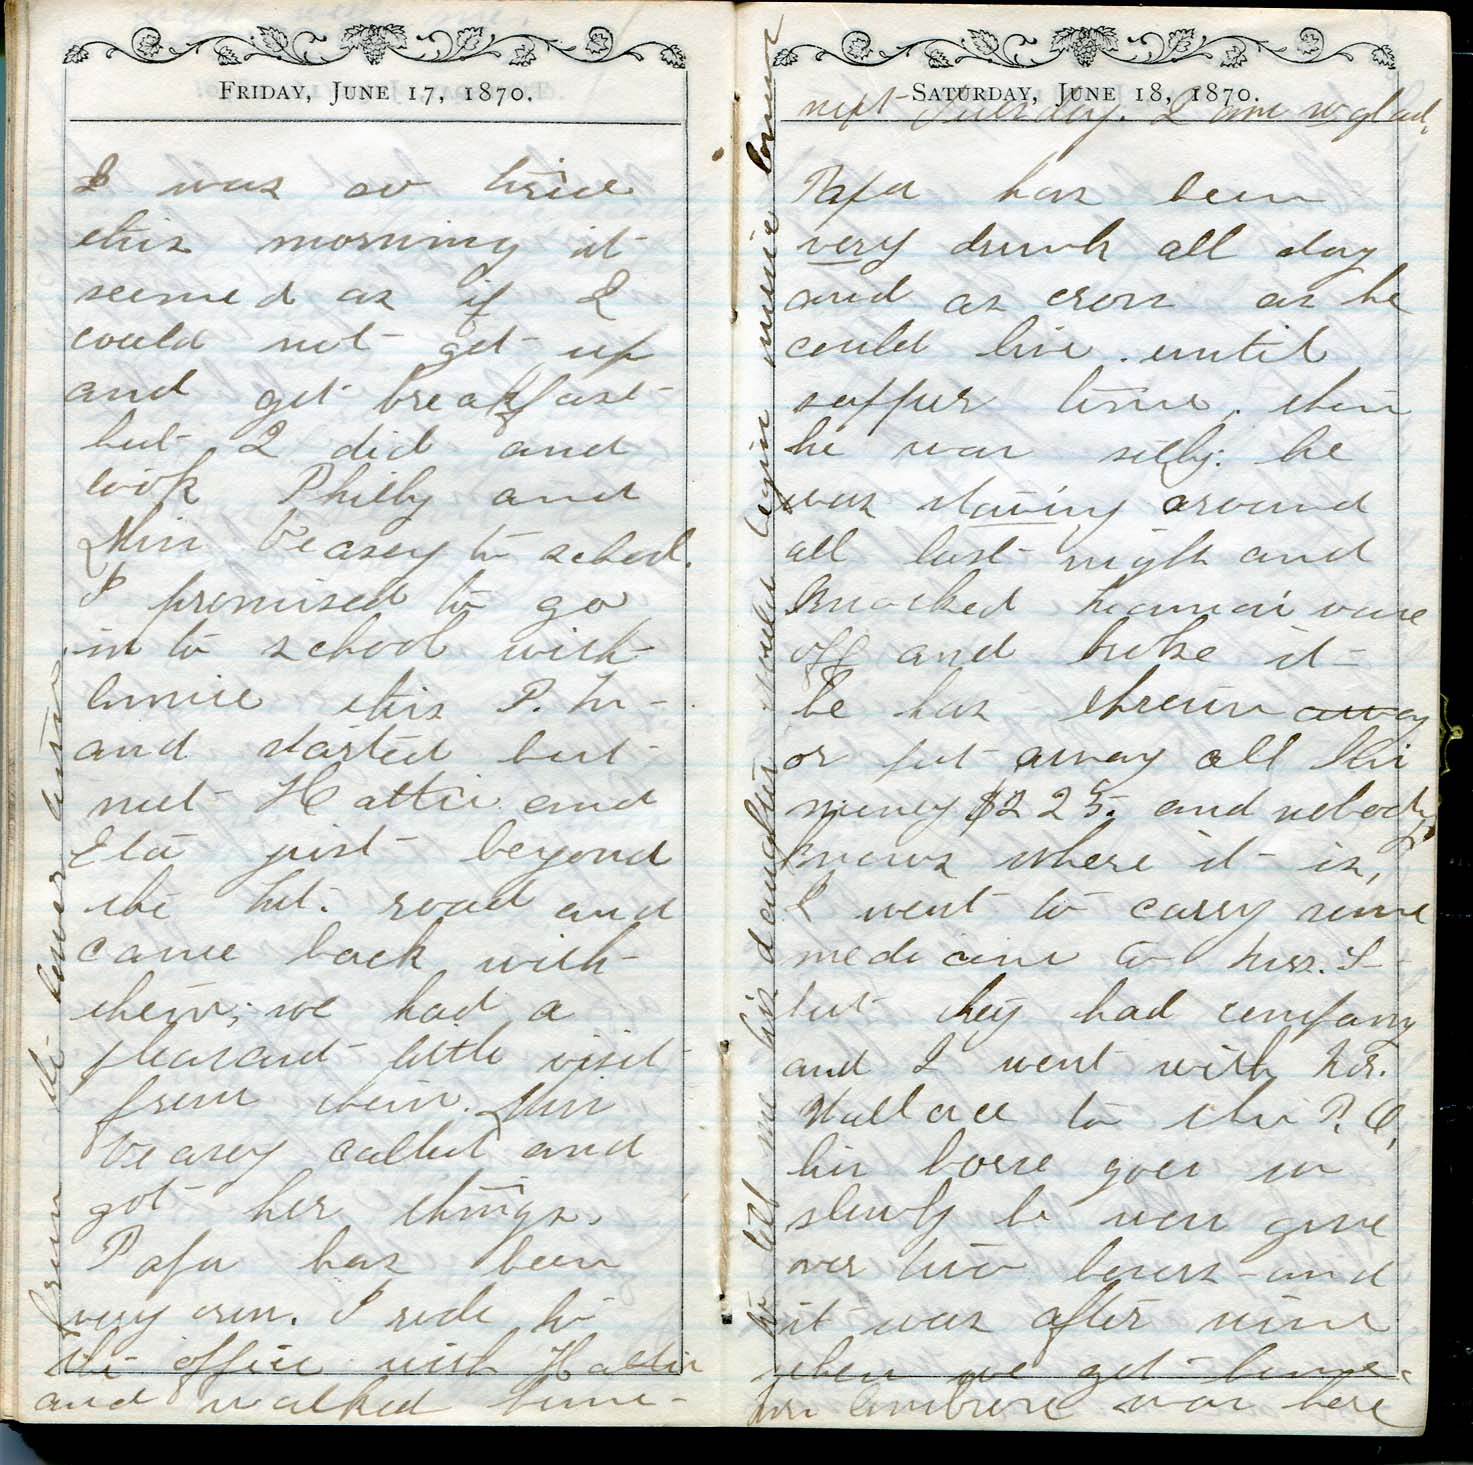 FRIDAY, JUNE 17, 1870.
I was so tired
this morning it
seemed as if I
could not get up
and get breakfast
but I did and
took Philly and
Miss Veasey to school.
I promised to go
in to school with
Annie this P. M.
and started but
met Hattie and
Eta just beyond
the mt. road and
came back with
them; we had a
pleasant little visit
from them. Miss
Veasey called and
got her things.
Papa has been
very cross. I rode to
the office with Hattie
and walked home
from the lower
SATURDAY, JUNE 18, 1870.
Papa has been
very drunk all day
and as cross as he
could live until
supper time, then
he was silly. he
was staving around
all last night and
knocked mamma's vase
off and broke it
he has thrown away
or put away all his
money $225. and nobody
knows where it is,
I went to carry some
medicine to Mrs. T
but they had company
and I went with Mr.
Wallace to the P. O.
his horse goes so
slowly we were gone
over two hours and
it was after nine
when we got home.
Mr Ambrose was here
to tell me his daughter would begin music lessons
next Tuesday. I am so glad.